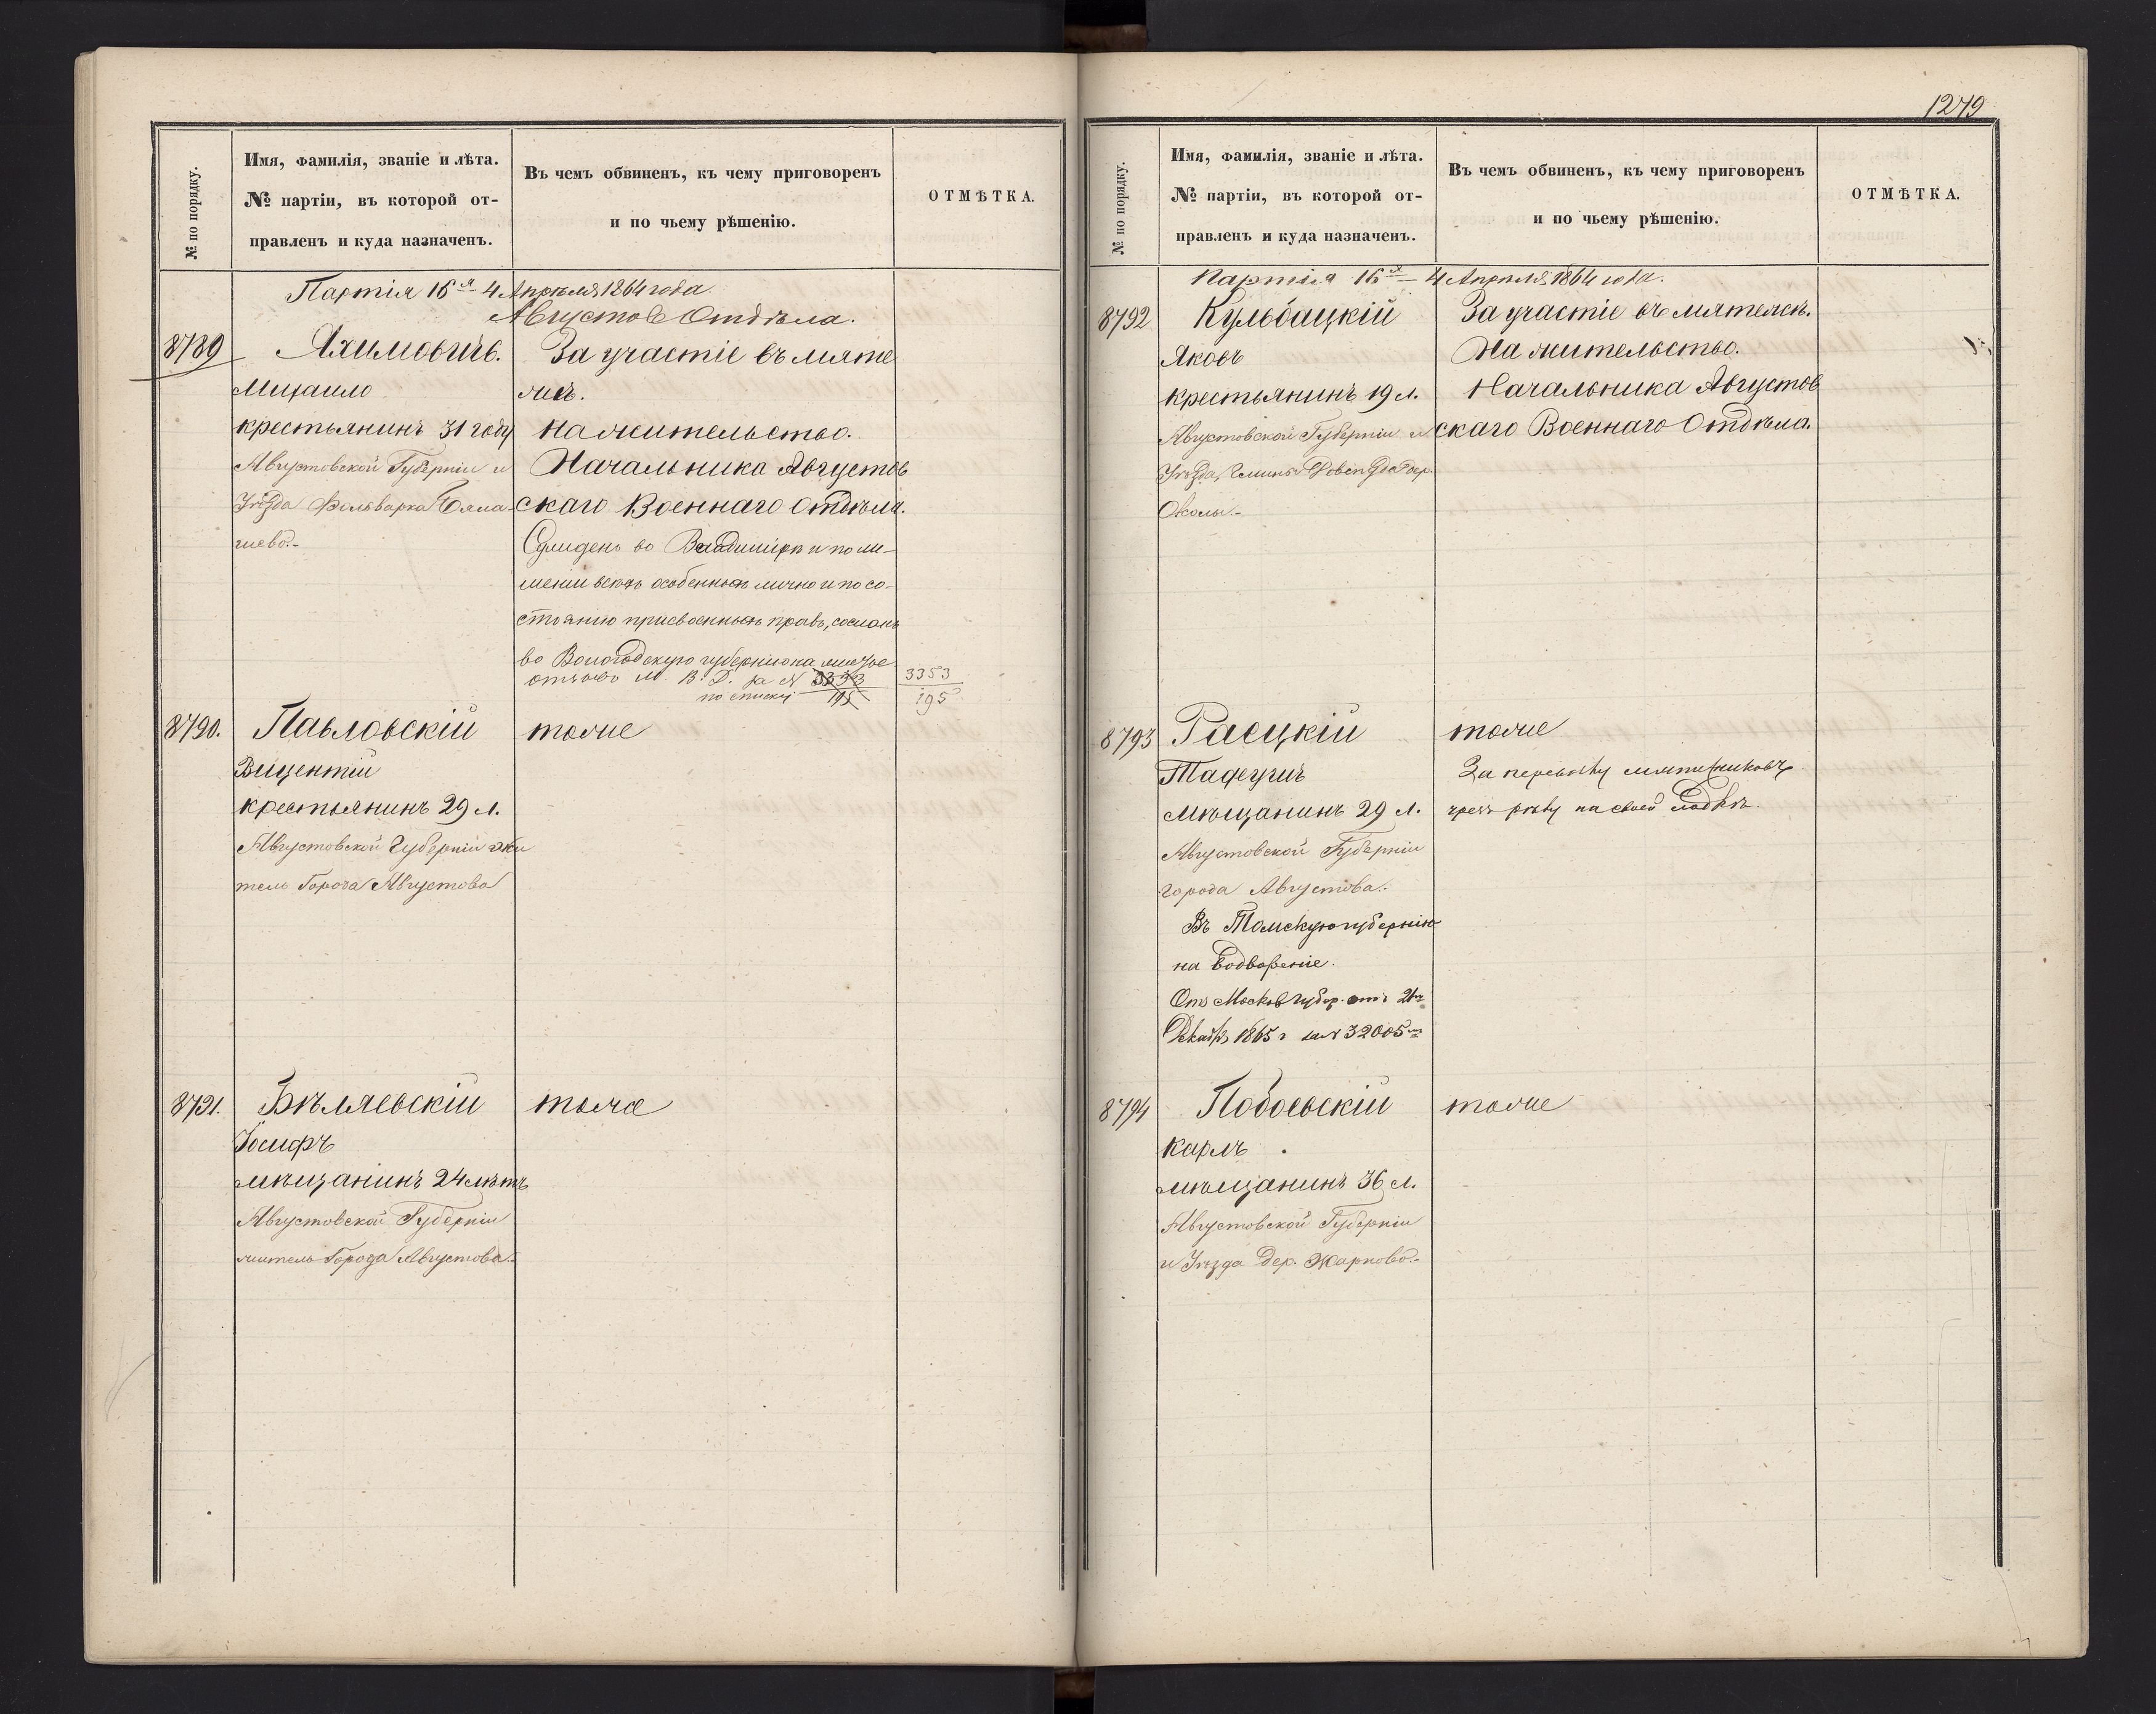 № по порядку.
Имя, фамилія, званіе и лѣта.
№ партіи, въ которой от-
правленъ и куда назначенъ.
Въ чемъ обвиненъ, къ чему приговоренъ
и по чьему рѣшенію.
ОТМѢТКА.
Партія 16я 4 Апрѣля 1864 года.
Августов Отдѣла.
8789
Яхимовичъ.
Михаило
крестьянинъ 31 году
Августовской Губерніи и
Уѣзда Фольварка
За участіе въ мяте
жѣ.
на жительство.
Начальника Августов
скаго Военнаго Отдѣла.
во Владимірѣ и по ли-
шеніи всѣхъ особенныхъ лично и по со-
стоянію присвоенныхъ правъ, сосланъ
во Вологодскую губернію на
М. В. Д. за № 3353
по списку 195
3353
195
8790.
Павловскій
Вицентій
крестьянинъ 29 л.
Августовской Губерніи жи
тель Города Августова
тоже
8791.
Бѣляевскій
Іосифъ
мѣщанинъ 24 лѣтъ
Августовской Губерніи
житель Города Августова.-
тоже
1279
№ по порядку.
Имя, фамилія, званіе и лѣта.
№ партіи, въ которой от-
правленъ и куда назначенъ.
Въ чемъ обвиненъ, къ чему приговоренъ
и по чьему рѣшенію.
ОТМѢТКА.
Партія 16я — 4 Апрѣля 1864 года.
8792
Кульбацкій
Яковъ
крестьянинъ 19 л.
Августовской Губерніи и
Уѣзда, Гмины
За участіе въ мятежѣ.
На жительство.
Начальника Августов
скаго Военнаго Отдѣла.
8793
Раецкій
Тадеушъ
мѣщанинъ 29 л.
Августовской Губерніи
города Августова.-
Въ Томскую губернію
на водвореніе.
От Москов губер. отъ 21го
Декабр 1865 г за № 32005
тоже
За перевозку мятежниковъ
чрезъ рѣку на своей лодкѣ.
8794
Побоевскій
Карлъ
мѣщанинъ 36 л.
Августовской Губерніи
и Уѣзда Дер. Жарново.-
тоже